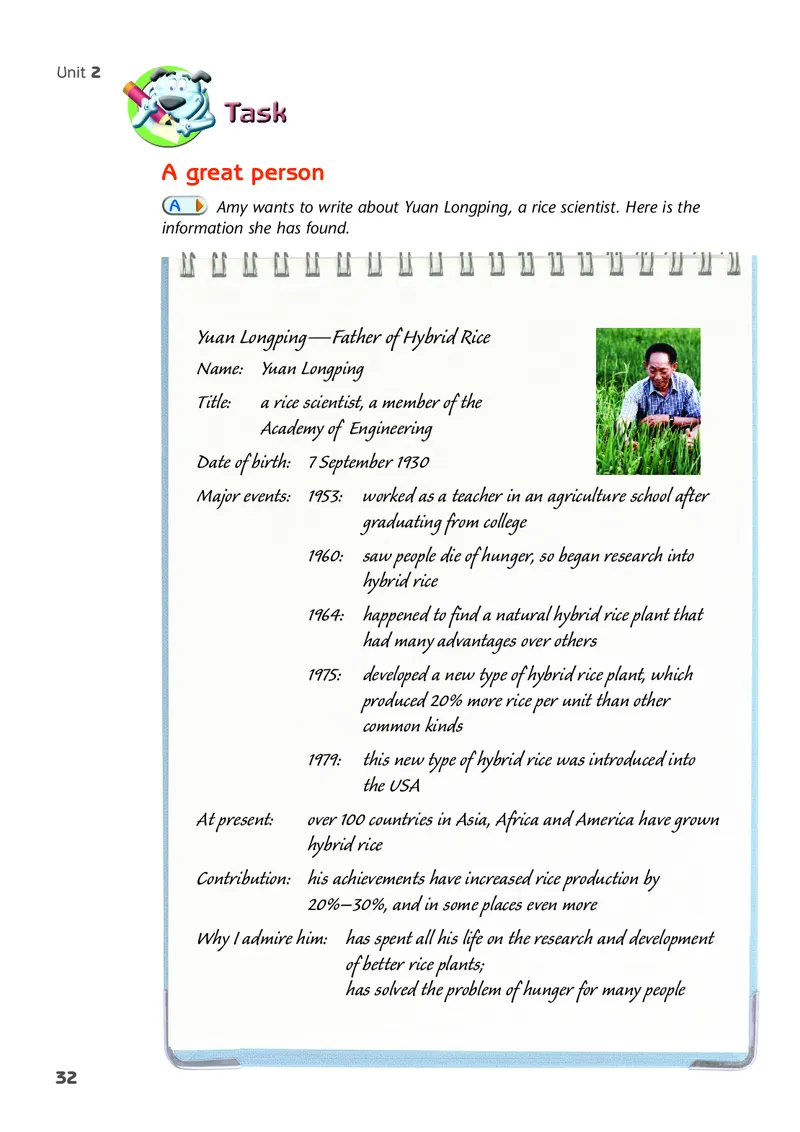 Unit 2
Task
A great person
A Amy wants to write about Yuan Longping, a rice scientist. Here is the
information she has found.
Yuan Longping—Father of Hybrid Rice
Name: Yuan Longping
Title: a rice scientist, a member of the
Academy of Engineering
Date of birth: 7 September 1930
Major events: 1953: worked as a teacher in an agriculture school after
graduating from college
1960: saw people die of hunger, so began research into
hybrid rice
1964: happened to find a natural hybrid rice plant that
had many advantages over others
1975: developed a new type of hybrid rice plant, which
produced 20% more rice per unit than other
common kinds
1979: this new type of hybrid rice was introduced into
the USA
At present: over 100 countries in Asia, Africa and America have grown
hybrid rice
Contribution: his achievements have increased rice production by
20%–30%, and in some places even more
Why I admire him: has spent all his life on the research and development
of better rice plants;
has solved the problem of hunger for many people
32